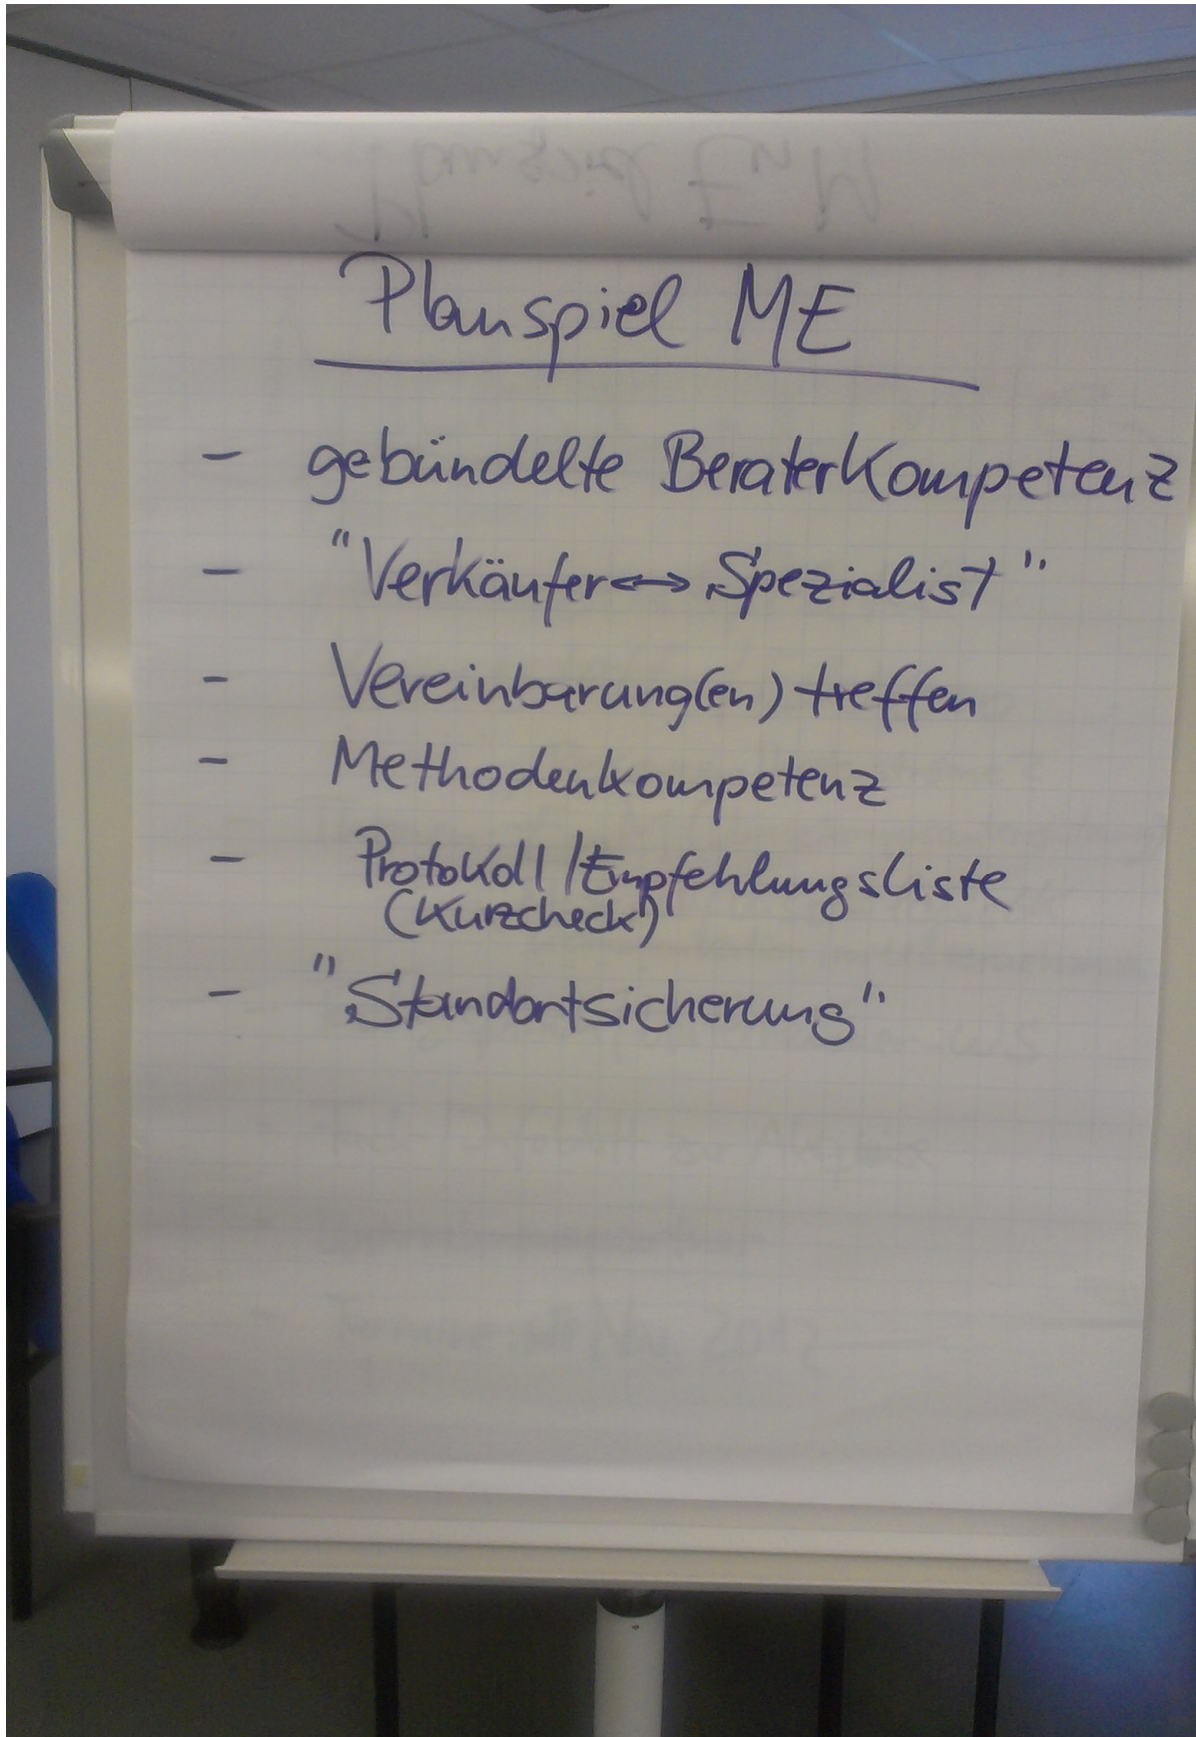 Planspiel ME
- gebündelte Beraterkompetenz
- "Verkäufer ↔ Spezialist"
- Vereinbarung(en) treffen
- Methodenkompetenz
- Protokoll / Empfehlungsliste
(Kurzcheck)
- "Standortsicherung"